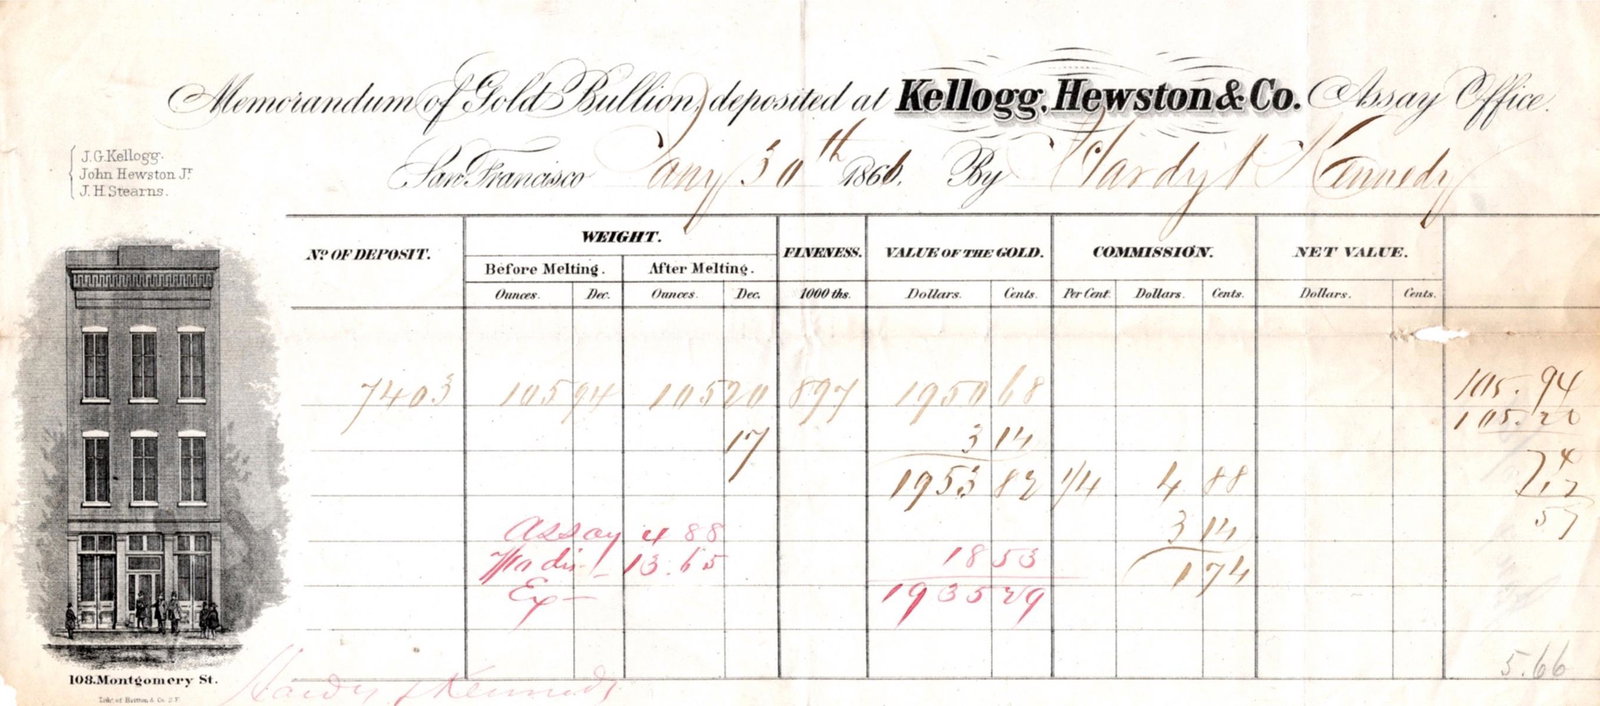 Memorandum of Gold Bullion, deposited at Kellogg, Hewston & Co. Assay Office.
San Francisco Jany 30th 1866. By Hardy & Kennedy
J.G. Kellogg.
John Hewston Jr
J.H. Stearns.
No. OF DEPOSIT. WEIGHT. FINENESS. VALUE OF THE GOLD. COMMISSION. NET VALUE.
Before Melting. After Melting.
Ounces. Dec. Ounces. Dec. 1000 ths. Dollars. Cents. Per Cent. Dollars. Cents. Dollars. Cents.
7403 105 94 105 20 897 1950 68 105.94
17 3 14 105.20
1953 82 1/4 4 88 74
.17
Assay 4 88 3 14 57
13.65 18 53 1 74
Ex 1935 29
5.66
108. Montgomery St.
Hardy & Kennedy
Lith. of Britton & Co. S.F.